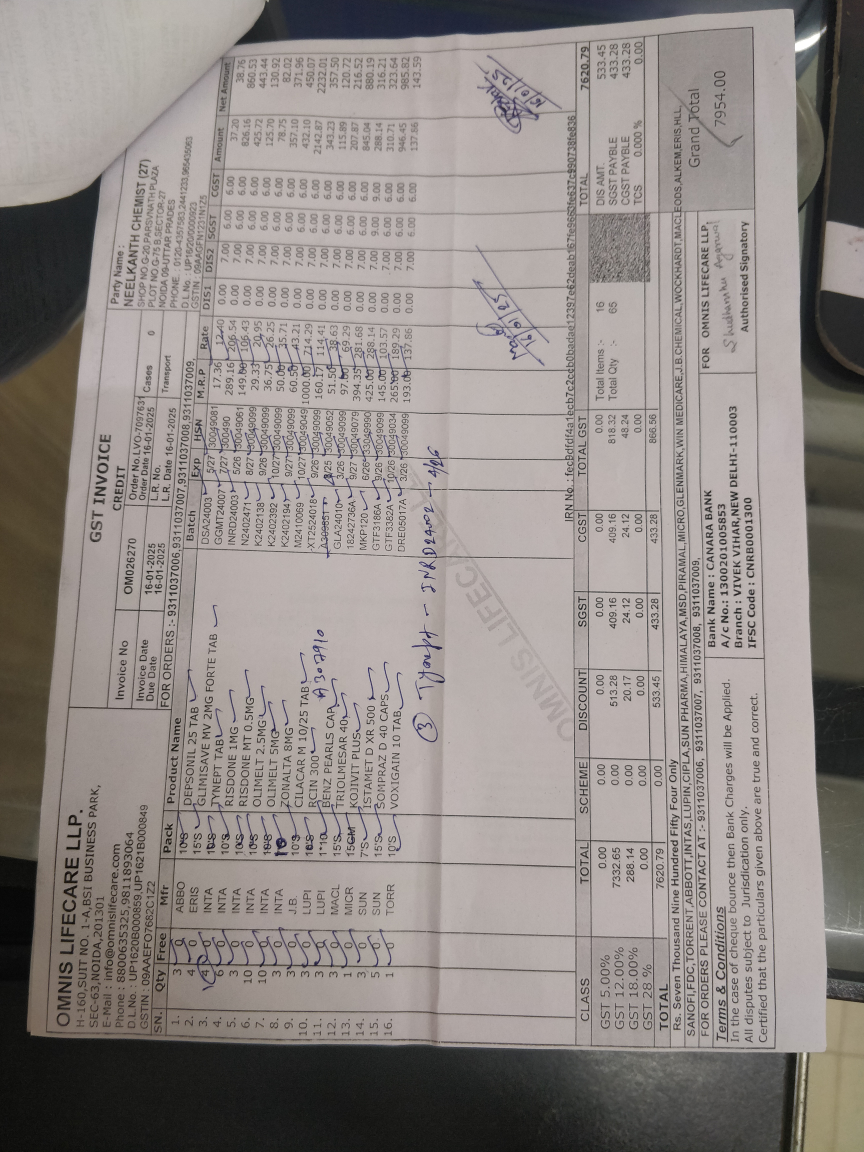 OMNIS LIFECARE LLP.
H-160,SUIT NO. 1-A,BSI BUSINESS PARK,
SEC-63,NOIDA,201301
E-Mail : info@omnislifecare.com
Phone : 8800635325,9811893064
D.L.No. : UP1620B000859,UP1621B000849
GSTIN : 09AAEFO7682C1Z2
GST INVOICE
CREDIT
Invoice No OM026270 Order No.LVO-7097631
Order Date 16-01-2025 Cases 0
Invoice Date 16-01-2025 L.R. No.
Due Date 16-01-2025 L.R. Date 16-01-2025 Transport
FOR ORDERS :- 9311037006,9311037007,9311037008,9311037009,
Party Name :
NEELKANTH CHEMIST (27)
SHOP NO.G-20,PARSVNATH PLAZA
PLOT NO.G-75 B,SECTOR-27
NOIDA 09-UTTAR PRADES
PHONE : 0120-4357583,2441233,965435063
D.L.No. : UP1620/0000923
GSTIN : 09AAGFN1231N1Z5
SN. Qty Free Mfr Pack Product Name Batch Exp HSN M.R.P Rate DIS1 DIS2 SGST CGST Amount Net Amount
1. 3 0 ABBO 10'S DEPSONIL 25 TAB DSA24003 5/27 30049081 17.36 12.40 0.00 7.00 6.00 6.00 37.20 38.76
2. 4 0 ERIS 15'S GLIMISAVE MV 2MG FORTE TAB GGMT24007 7/27 300490 289.16 206.54 0.00 7.00 6.00 6.00 826.16 860.53
3. 4 0 INTA 10'S TYNEPT TAB INRD24003 5/26 30049061 149.00 106.43 0.00 7.00 6.00 6.00 425.72 443.44
4. 6 0 INTA 10'S RISDONE 1MG N2402471 8/27 30049099 29.33 20.95 0.00 7.00 6.00 6.00 125.70 130.92
5. 3 0 INTA 10'S RISDONE MT 0.5MG K2402138 9/26 30049099 36.75 26.25 0.00 7.00 6.00 6.00 78.75 82.02
6. 10 0 INTA 10'S OLIMELT 2.5MG K2402392 10/27 30049099 50.00 35.71 0.00 7.00 6.00 6.00 357.10 371.96
7. 10 0 INTA 10'S OLIMELT 5MG K2402194 9/27 30049099 60.50 43.21 0.00 7.00 6.00 6.00 432.10 450.07
8. 3 0 INTA 10 ZONALTA 8MG M2410069 10/27 30049049 1000.00 714.29 0.00 7.00 6.00 6.00 2142.87 2232.01
9. 3 0 J.B. 10'S CILACAR M 10/25 TAB XT2524018 9/26 30049099 160.17 114.41 0.00 7.00 6.00 6.00 343.23 357.50
10. 3 0 LUPI 10'S RCIN 300 A309651 30049052 51.50 38.63 0.00 7.00 6.00 6.00 115.89 120.72
A307910
11. 3 0 LUPI 1*10 BENZ PEARLS CAP CLA24010 3/26 30049099 97.00 69.29 0.00 7.00 6.00 6.00 207.87 216.52
12. 3 0 MACL 15'S TRIOLMESAR 40 18242736A 9/27 30049079 394.35 281.68 0.00 7.00 6.00 6.00 845.04 880.19
13. 1 0 MICR 15GM KOJIVIT PLUS MKP120 6/26 33049990 425.00 288.14 0.00 7.00 9.00 9.00 288.14 316.21
14. 3 0 SUN 7'S ISTAMET D XR 500 GTF3186A 9/26 30049099 145.00 103.57 0.00 7.00 6.00 6.00 310.71 323.64
15. 5 0 SUN 15'S SOMPRAZ D 40 CAPS GTF3382A 10/26 30049034 265.00 189.29 0.00 7.00 6.00 6.00 946.45 985.82
16. 1 0 TORR 10'S VOXIGAIN 10 TAB DRE05017A 3/26 30049099 193.00 137.86 0.00 7.00 6.00 6.00 137.86 143.59
③ Tynept - INRD24002 - 4/26
OMNIS LIFECARE
16/01/25
16/01/25
IRN No. : fec9dfdf4a1ecb7c2ceb0badae12397e62deab167fe9663fe637c990738fe836
CLASS TOTAL SCHEME DISCOUNT SGST CGST TOTAL GST
GST 5.00% 0.00 0.00 0.00 0.00 0.00 0.00
GST 12.00% 7332.65 0.00 513.28 409.16 409.16 818.32
GST 18.00% 288.14 0.00 20.17 24.12 24.12 48.24
GST 28 % 0.00 0.00 0.00 0.00 0.00 0.00
TOTAL 7620.79 0.00 533.45 433.28 433.28 866.56
Total Items :- 16
Total Qty :- 65
TOTAL 7620.79
DIS AMT. 533.45
SGST PAYBLE 433.28
CGST PAYBLE 433.28
TCS 0.000 % 0.00
Grand Total
7954.00
Rs. Seven Thousand Nine Hundred Fifty Four Only
SANOFI,FDC,TORRENT,ABBOTT,INTAS,LUPIN,CIPLA,SUN PHARMA,HIMALAYA,MSD,PIRAMAL,MICRO,GLENMARK,WIN MEDICARE,J.B.CHEMICAL,WOCKHARDT,MACLEODS,ALKEM,ERIS,HLL,
FOR ORDERS PLEASE CONTACT AT :- 9311037006, 9311037007, 9311037008, 9311037009,
Terms & Conditions
In the case of cheque bounce then Bank Charges will be Applied.
All disputes subject to Jurisdication only.
Certified that the particulars given above are true and correct.
Bank Name : CANARA BANK
A/c No.: 1300201005853
Branch : VIVEK VIHAR,NEW DELHI-110003
IFSC Code : CNRB0001300
FOR OMNIS LIFECARE LLP.
Shudhanshu Agarwal
Authorised Signatory